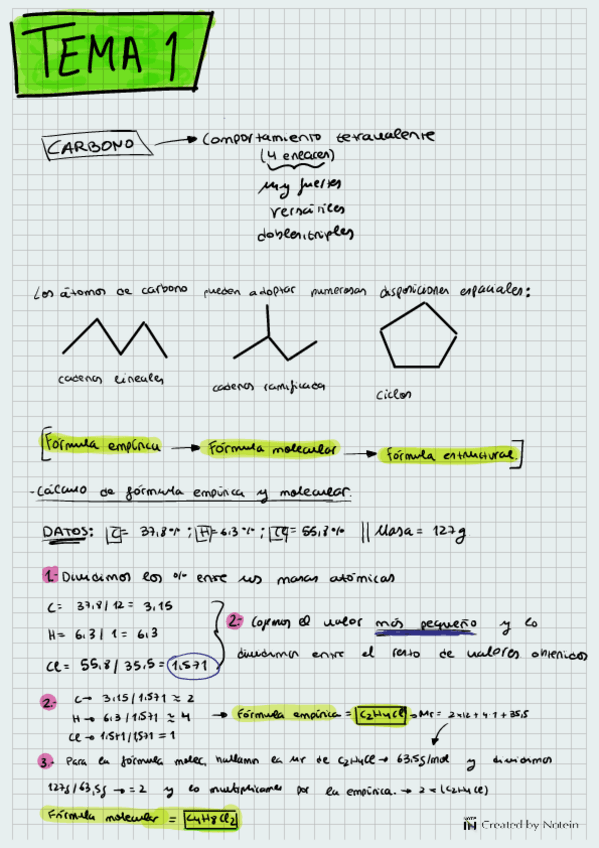 TEMA 1
CARBONO → Comportamiento tetravalente
(4 enlaces)
muy fuertes
versátiles
dobles, triples
Los átomos de carbono pueden adoptar numerosas disposiciones espaciales:
cadenas lineales
cadenas ramificadas
ciclos
[Fórmula empírica → Fórmula molecular → Fórmula estructural.]
- Cálculo de fórmula empírica y molecular.
DATOS: C = 37,8% ; H = 6,3% ; Cl = 55,8% || Masa = 127g
1.- Dividimos los % entre sus masas atómicas
C = 37,8 / 12 = 3,15
H = 6,3 / 1 = 6,3
Cl = 55,8 / 35,5 = 1,571
2.- Cogemos el valor más pequeño y lo
dividimos entre el resto de valores obtenidos
2.- C → 3,15 / 1,571 ≈ 2
H → 6,3 / 1,571 ≈ 4
Cl → 1,571 / 1,571 = 1
→ Fórmula empírica = C2H4Cl → Mr = 2x12 + 4·1 + 35,5
3.- Para la fórmula molec, hallamos la Mr de C2H4Cl → 63,5g/mol y dividimos
127g / 63,5g → = 2 y lo multiplicamos por la empírica. → 2x(C2H4Cl)
Fórmula molecular = C4H8Cl2
Created by Notein